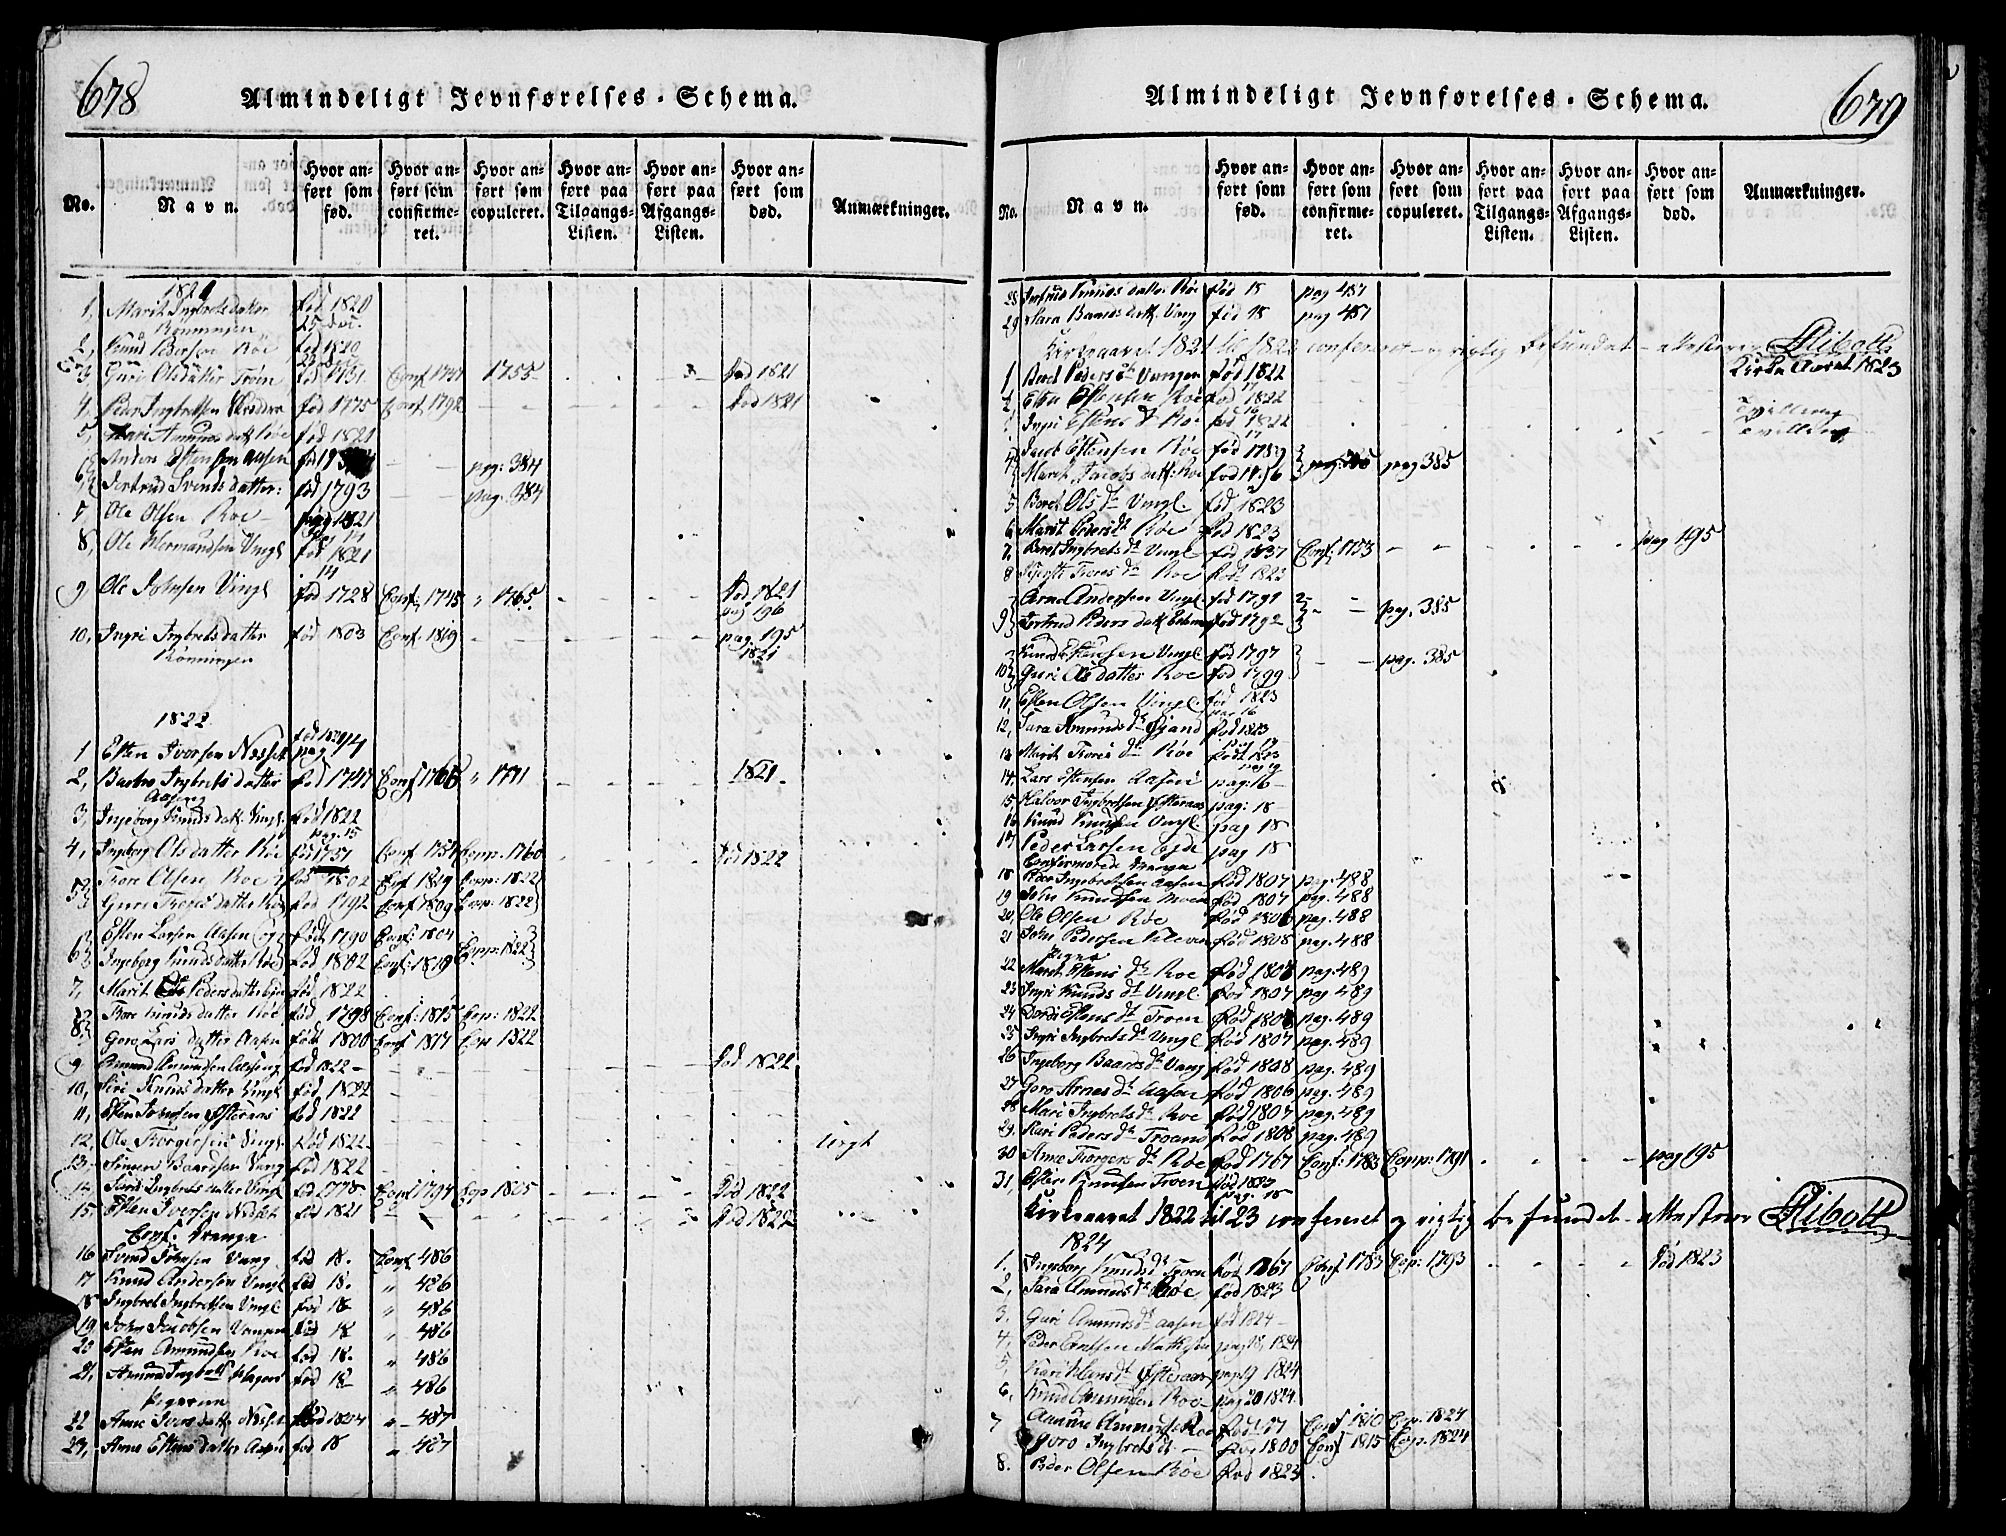 678
Almindeligt Jevnførelses-Schema.
No. Navn. Hvor anført som fød. Hvor anført som confirmeret. Hvor anført som copuleret. Hvor anført paa Tilgangs-Listen. Hvor anført paa Afgangs-Listen. Hvor anført som død. Anmærkninger.
1821
1, Marit Ingbretsdatter fød 1820
Rønningen 25 Dec.
2, Knud Pedersen Røe fød 1820
3, Guri Olsdatter Trøen fød 1731 Conf 1747 1755 død 1821
4, Peder Ingbretsen fød 1775 Conf. 1792 død 1821
5, Kari Amunds datt. Røe fød 1821
6, Anders Estensen Aasen pag: 384
Gertrud Svends datter: fød 1793 pag. 384
7 Ole Olsen Roe 1821
8, Ole Hermandsen Vingl fød 1821
14
9, Ole Johnsen Vingl fød 1728 Conf. 1745 " 1765. død 1821
pag 196
10, Ingri Ingbretsdatter fød 1803 Conf. 1819 pag. 195
Rønningen 1821
1822
1 Esten Iversen Nesset
2, Ingbrets datter fød 1747 " 1771 1821
Aasen
3, Ingeborg Knuds dat. Vingl. fød 1822
pag. 15
4, Ingeborg Olsdatter Røe Conf 1754 Copp. 1760 død 1822
5 Tore Olsen Roe fød 1802 Conf 1819 Copp. 1822
Guri Tores datter Røe fød 1792 Conf 1809 Cop: 1822
6 Esten Larsen Aasen og fød 1790 Conf: 1804
Ingeborg Knudsdatter Røe fød 1802 Conf: 1819 Copp: 1822
7, Marit Peders datter fød 1822
8 Tore Knudsdatter Røe fød 1798 Conf: 1815 Cop: 1822
Goro Lars datter Aasen født 1800 Conf 1817 Cop 1822
9 Amund Amundsen Aaseng fød 1822 død 1822
10, Siri Knuds datter Vingl fød 1822
11, Esten Johnsen Østeraas fød 1822
12, Ole Torgersen Vingl. fød 1822
13, Simen Baardsen Vang fød 1822
14, Ingbrets datter Vingl fød 1775 Conf 1794 Cop 1805 død 1822
15, Esten Iversen Nesset fød 1821 død 1822
Conf. Drenge
16 Svend Johnsen Vang fød 18. Conf 486
17 Knud Andersen Vingl fød 18. " 486
18 Ingbret Ingbretsen Vingl fød 18 " 486
19 John Jacobsen Vangen fød 18 " 486
20 Esten Amundsen Roe fød 18. " 486
21, Amund Ingbretsen fød 18 " 486
Pigerne
22 Anne Ivers datter Nesset fød 1804 " 487
23, Anne Estens datter Aasen fød 18 " 487
679
Almindeligt Jevnførelses-Schema.
No. Navn. Hvor anført som fød. Hvor anført som confirmeret. Hvor anført som copuleret. Hvor anført paa Tilgangs-Listen. Hvor anført paa Afgangs-Listen. Hvor anført som død. Anmærkninger.
28 Gertrud Knuds datter Røe fød 18 pag 487
29 Sara Baards datt. Vang fød 18 pag 487
Kirkeaaret 1821 til 1822 conferret og rigtig befundet attesterer Ribolt
Kirke Aaret 1823
1 Beret Peders dr Vangen fød 1822
2, Esten Estensen Roe fød 1822 Tvilling
Ingri Estens dr Roe fød 1822 Tvilling
4 Jacob Estensen Røe fød 1789
Marit Jacobs datt. Roe fød 1796 pag 385
5 Beret Ols dr Vingl. fød 1823
6, Marit Peders dr Røe fød 1823
7, Beret Ingbrets dr Vingl fød 1737 Conf: 1753 pag 195
8 Tores dr Roe fød 1823
9 Arne Andersen Vingl fød 1791 pag. 385
Gertrud Peders datt. fød 1792
10 Knud Estensen Vingl fød 1797 pag. 385
Guri Olsdatter Roe fød 1799
11, Esten Olsen Vingl fød 1823
pag 16
12, Sara Amunds dr Øyand fød 1823
13 Marit Tores dr Røe født 1823
14, Lars Estensen Aasen pag: 16
15, Halvor Ingbretsen Østeraas pag: 18
16 Knud Knudsen Vingl pag 18
17 Peder Larsen Egde pag 18
Confirmerede Drenge
18 Peder Ingbretsen Aasen fød 1807 pag. 488
19 John Knudsen Moen fød 1807 pag. 488
20, Ole Olsen Røe fød 1806 pag. 488
21 John Pedersen fød 1808 pag. 488
Pigerne
22 Marit Estens dr Roe fød 1808 pag. 489
23 Ingri Knuds dr Vingl fød 1807 pag 489
24 Dordi Estens dr Troen fød 1808 pag. 489
25 Ingri Ingbrets dr Vingl fød 1807 pag. 489
26 Ingeborg Baards dr Vang fød 1808 pag. 489
27 Goro Arnes dr Aasen fød 1806 pag. 489
28 Mari Ingbrets dr Roe fød 1807 pag. 489
29. Kari Peders dr Troand fød 1808 pag. 489
30 Anne Torgers dr Røe fød 1767 Conf: 1783 Copp: 1791 pag 195
31, Esten Knudsen Troen fød 1823
pag. 18
Kirkeaaret 1822 til 23 conferret og rigtig befundet attesterer Ribolt
1824
1. Ingeborg Knuds dr Troen fød 1761 Conf 1783 Cop: 1793 død 1823
2, Sara Amunds dr Røe fød 1823
3. Guri Amunds dr Aasen fød 1824
4, Peder Mathisen pag 18, 1824
5, Kari Hans dr Østeraas pag 19 1824
6, Knud Amundsen Roe pag 20 1824
7 Amund Amundsen Roe Conf 1810 Cop. 1824
Goro Ingbrets dr fød 1800 Conf 1815 Cop. 1824
8. Peder Olsen Røe fød 1823.